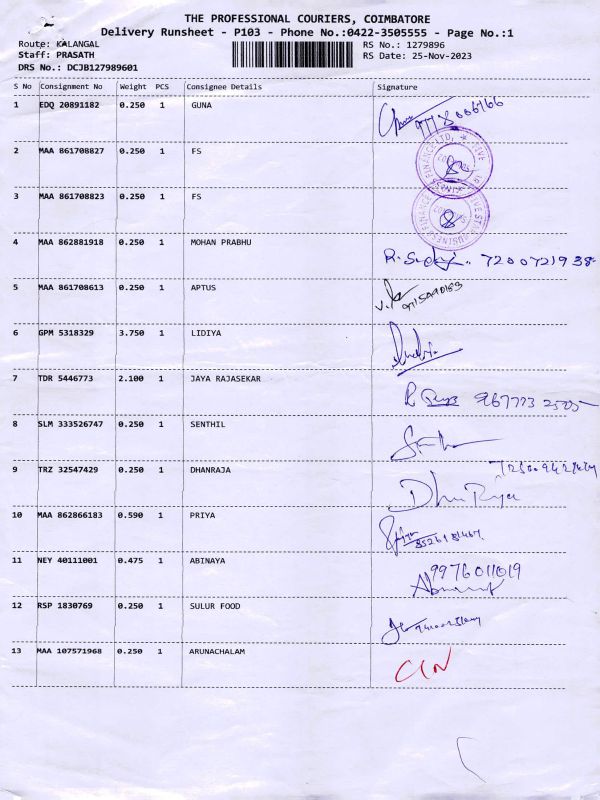 THE PROFESSIONAL COURIERS, COIMBATORE
Delivery Runsheet - P103 - Phone No.:0422-3505555 - Page No.:1
Route: KALANGAL RS No.: 1279896
Staff: PRASATH RS Date: 25-Nov-2023
DRS No.: DCJB127989601
S No Consignment No Weight PCS Consignee Details Signature
1 EDQ 20891182 0.250 1 GUNA
2 MAA 861708827 0.250 1 FS
3 MAA 861708823 0.250 1 FS
4 MAA 862881918 0.250 1 MOHAN PRABHU 7200721938
5 MAA 861708613 0.250 1 APTUS
6 GPM 5318329 3.750 1 LIDIYA
7 TDR 5446773 2.100 1 JAYA RAJASEKAR
8 SLM 333526747 0.250 1 SENTHIL
9 TRZ 32547429 0.250 1 DHANRAJA
10 MAA 862866183 0.590 1 PRIYA
11 NEY 40111001 0.475 1 ABINAYA 9976011019
12 RSP 1830769 0.250 1 SULUR FOOD
13 MAA 107571968 0.250 1 ARUNACHALAM